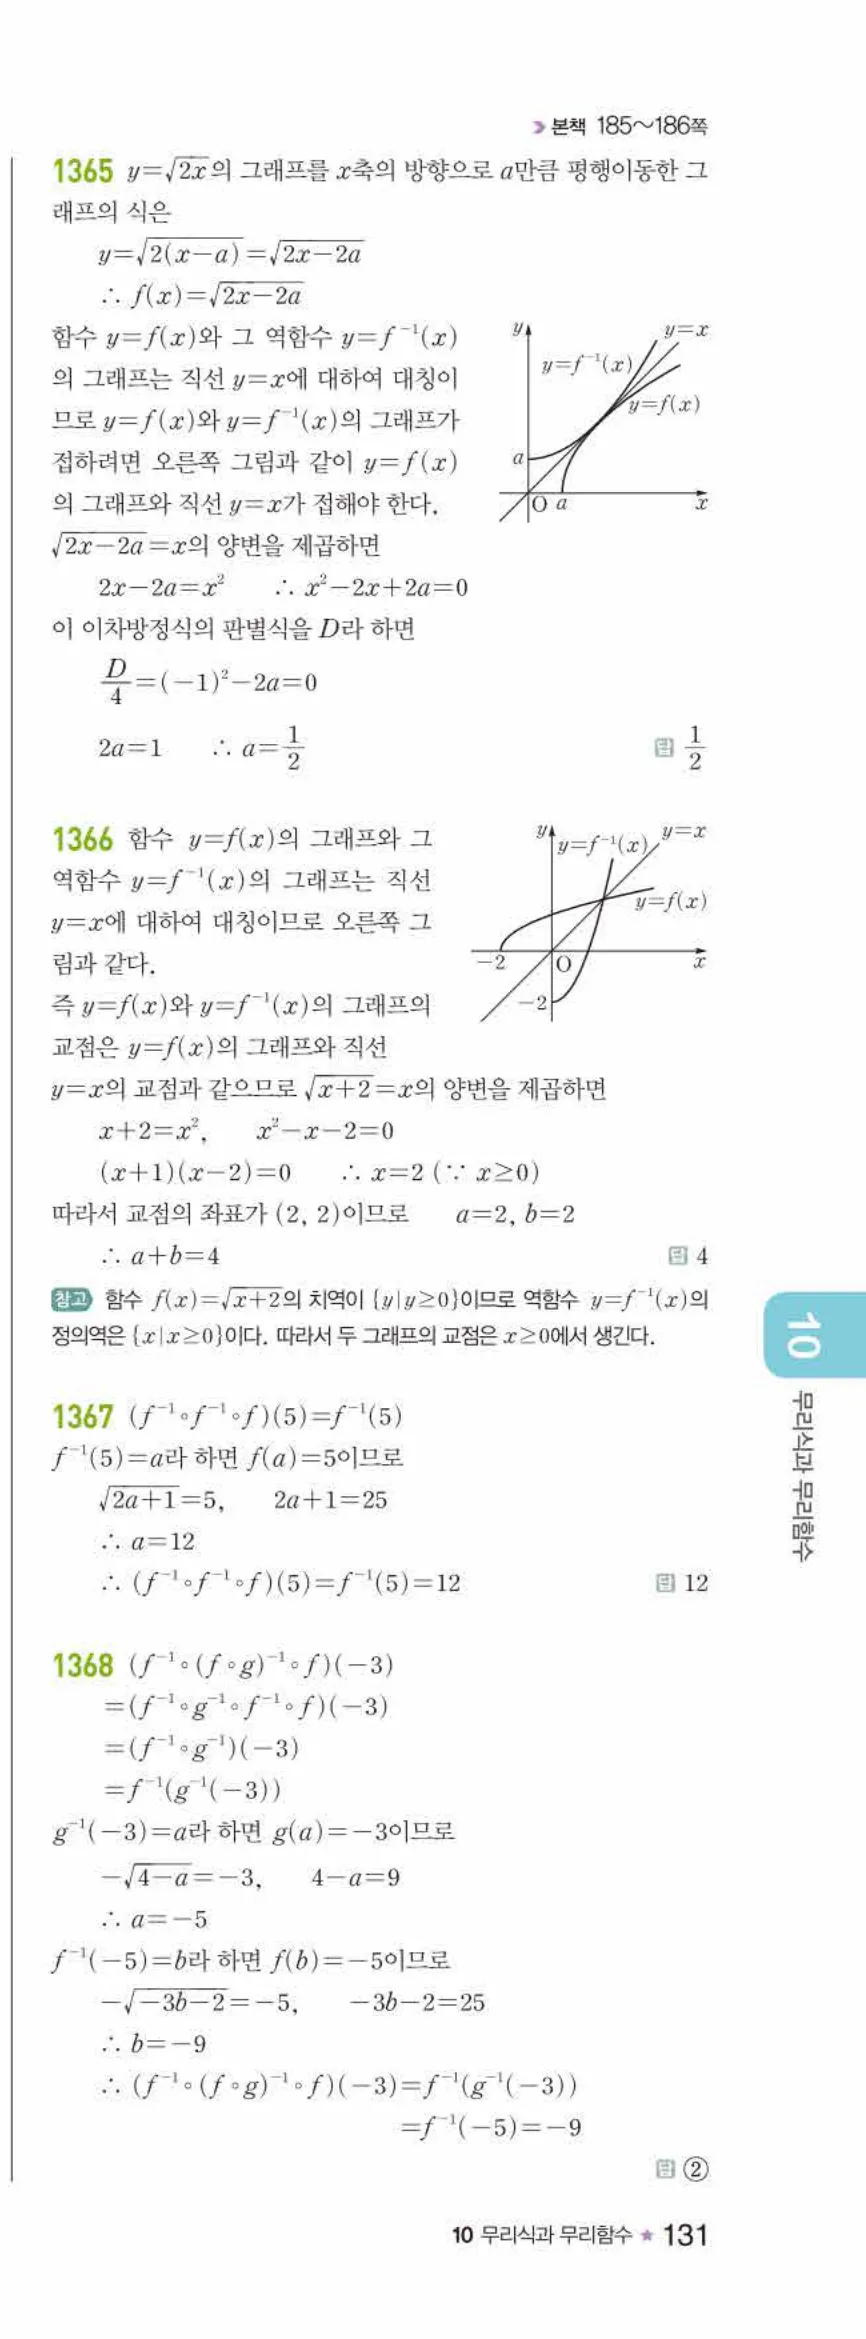 본책 185~186쪽
1365 y=√2x의 그래프를 x축의 방향으로 a만큼 평행이동한 그
래프의 식은
y=√2(x-a)=√2x-2a
∴ f(x)=√2x-2a
함수 y=f(x)와 그 역함수 y=f⁻¹(x)
의 그래프는 직선 y=x에 대하여 대칭이
므로 y=f(x)와 y=f⁻¹(x)의 그래프가
접하려면 오른쪽 그림과 같이 y=f(x)
의 그래프와 직선 y=x가 접해야 한다.
y
y=x
y=f⁻¹(x)
y=f(x)
a
O a x
√2x-2a=x의 양변을 제곱하면
2x-2a=x² ∴ x²-2x+2a=0
이 이차방정식의 판별식을 D라 하면
D/4=(-1)²-2a=0
2a=1 ∴ a=1/2 답 1/2
1366 함수 y=f(x)의 그래프와 그
역함수 y=f⁻¹(x)의 그래프는 직선
y=x에 대하여 대칭이므로 오른쪽 그
림과 같다.
즉 y=f(x)와 y=f⁻¹(x)의 그래프의
교점은 y=f(x)의 그래프와 직선
y
y=x
y=f⁻¹(x)
y=f(x)
-2 O x
-2
y=x의 교점과 같으므로 √x+2=x의 양변을 제곱하면
x+2=x², x²-x-2=0
(x+1)(x-2)=0 ∴ x=2 (∵ x≥0)
따라서 교점의 좌표가 (2, 2)이므로 a=2, b=2
∴ a+b=4 답 4
참고 함수 f(x)=√x+2의 치역이 {y|y≥0}이므로 역함수 y=f⁻¹(x)의
정의역은 {x|x≥0}이다. 따라서 두 그래프의 교점은 x≥0에서 생긴다.
1367 (f⁻¹∘f⁻¹∘f)(5)=f⁻¹(5)
f⁻¹(5)=a라 하면 f(a)=5이므로
√2a+1=5, 2a+1=25
∴ a=12
∴ (f⁻¹∘f⁻¹∘f)(5)=f⁻¹(5)=12 답 12
1368 (f⁻¹∘(f∘g)⁻¹∘f)(-3)
=(f⁻¹∘g⁻¹∘f⁻¹∘f)(-3)
=(f⁻¹∘g⁻¹)(-3)
=f⁻¹(g⁻¹(-3))
g⁻¹(-3)=a라 하면 g(a)=-3이므로
-√4-a=-3, 4-a=9
∴ a=-5
f⁻¹(-5)=b라 하면 f(b)=-5이므로
-√-3b-2=-5, -3b-2=25
∴ b=-9
∴ (f⁻¹∘(f∘g)⁻¹∘f)(-3)=f⁻¹(g⁻¹(-3))
=f⁻¹(-5)=-9
답 ②
10 무리식과 무리함수
10 무리식과 무리함수 ★ 131